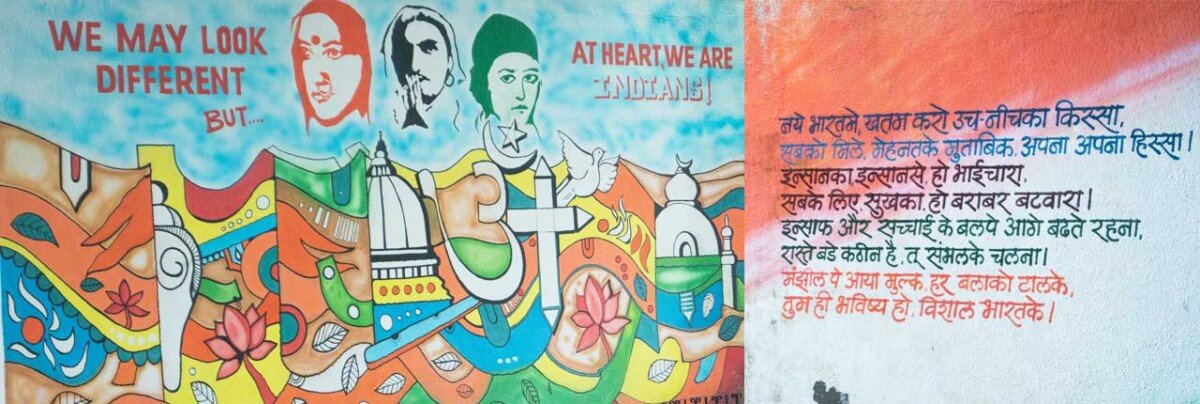 WE MAY LOOK
DIFFERENT
BUT....
AT HEART, WE ARE
INDIANS!
नये भारतमे, खतम करो उच-नीचका किस्सा,
सबको मिले, मेहनतके मुताबिक, अपना अपना हिस्सा।
इन्सानका, इन्सानसे, हो भाईचारा,
सबके लिए, सुखका, हो बराबर बटवारा।
इन्साफ और सच्चाई के बलपे आगे बढते रहना,
रास्ते बडे कठीन है, तू संभलके चलना।
मंझील पे आया मुल्क, हर बलाको टालके,
तुम ही भविष्य हो, विशाल भारतके।